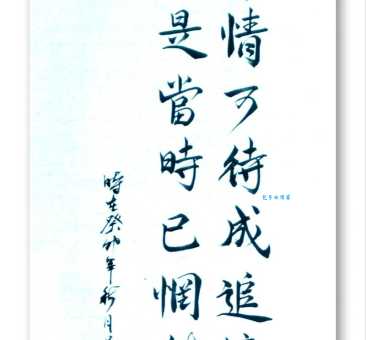 情可待成追
是當時已惘
時在癸卯年